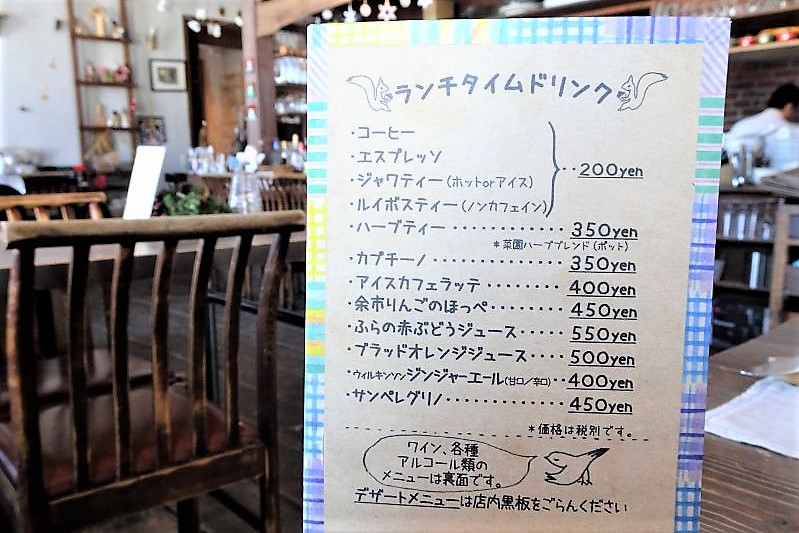 ランチタイムドリンク
・コーヒー
・エスプレッソ
・ジャワティー(ホットorアイス)
・ルイボスティー(ノンカフェイン)
‥200yen
・ハーブティー・・・・・・・・・・・350yen
*菜園ハーブブレンド(ポット)
・カプチーノ・・・・・・・・・・・・350yen
・アイスカフェラッテ・・・・・・・・400yen
・余市りんごのほっぺ・・・・・・・450yen
・ふらの赤ぶどうジュース・・・・・550yen
・ブラッドオレンジジュース・・・・500yen
・ウィルキンソンジンジャーエール(甘口/辛口)・・400yen
・サンペレグリノ・・・・・・・・・・450yen
*価格は税別です。
ワイン、各種
アルコール類の
メニューは裏面です。
デザートメニューは店内黒板をごらんください